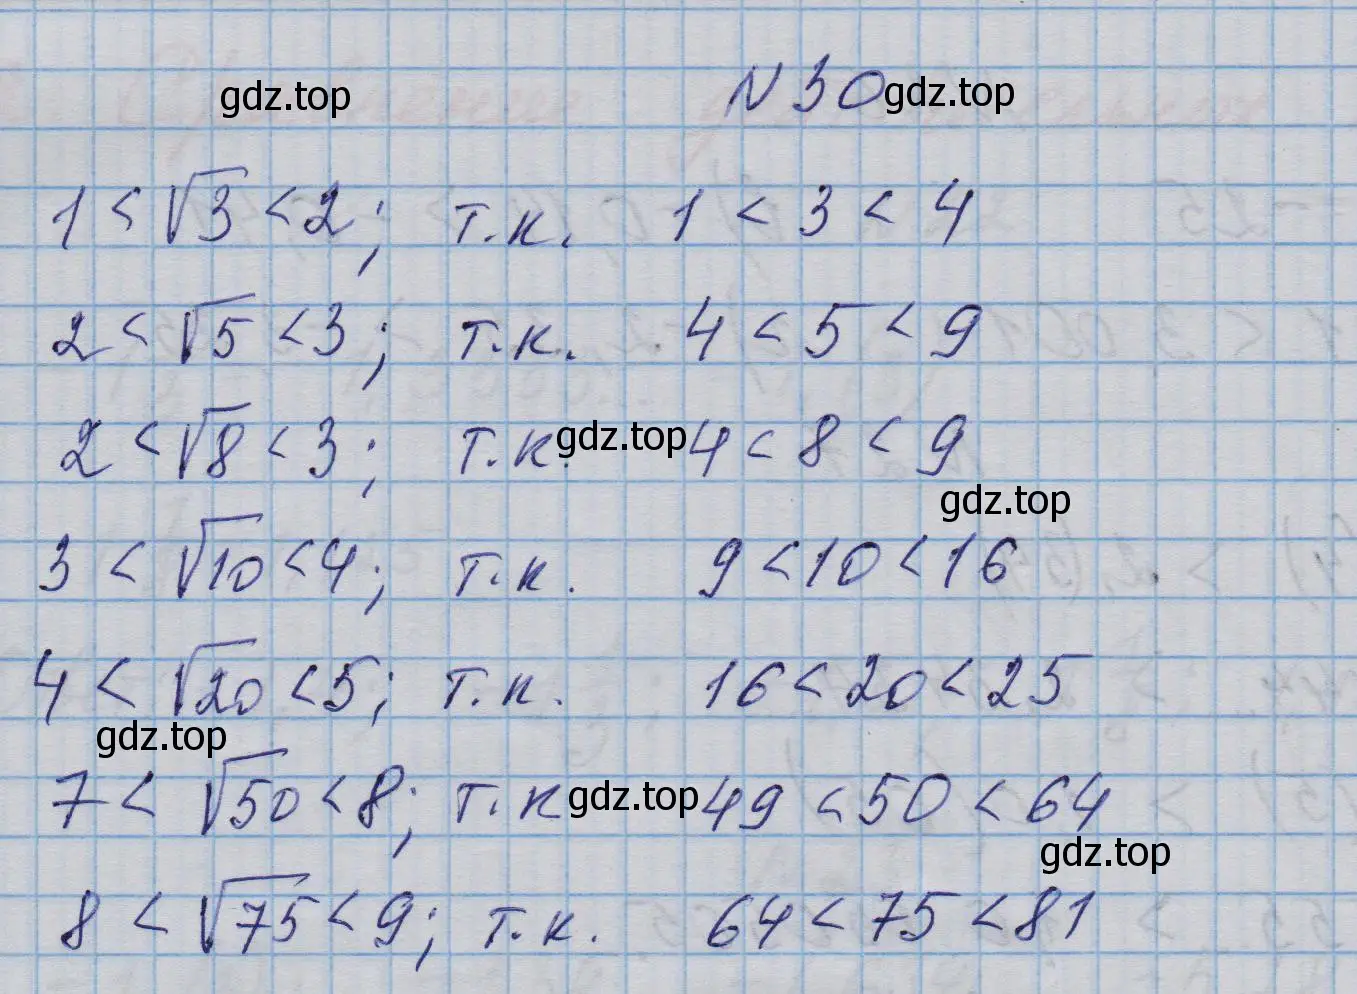 gdz.top N 30 gdz.top
1 < √3 < 2; т.к. 1 < 3 < 4
2 < √5 < 3; т.к. 4 < 5 < 9
2 < √8 < 3; т.к. gdz.top 4 < 8 < 9
gdz.top
3 < √10 < 4; т.к. 9 < 10 < 16
4 < √20 < 5; т.к. 16 < 20 < 25
gdz.top
7 < √50 < 8; т.к gdz.top 49 < 50 < 64
gdz.top
8 < √75 < 9; т.к. 64 < 75 < 81